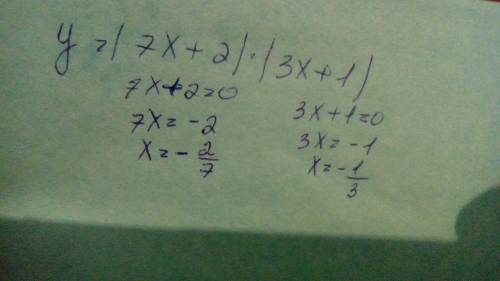 y = (7x + 2) · (3x + 1)
7x + 2 = 0
7x = -2
x = - 2/7
3x + 1 = 0
3x = -1
x = - 1/3